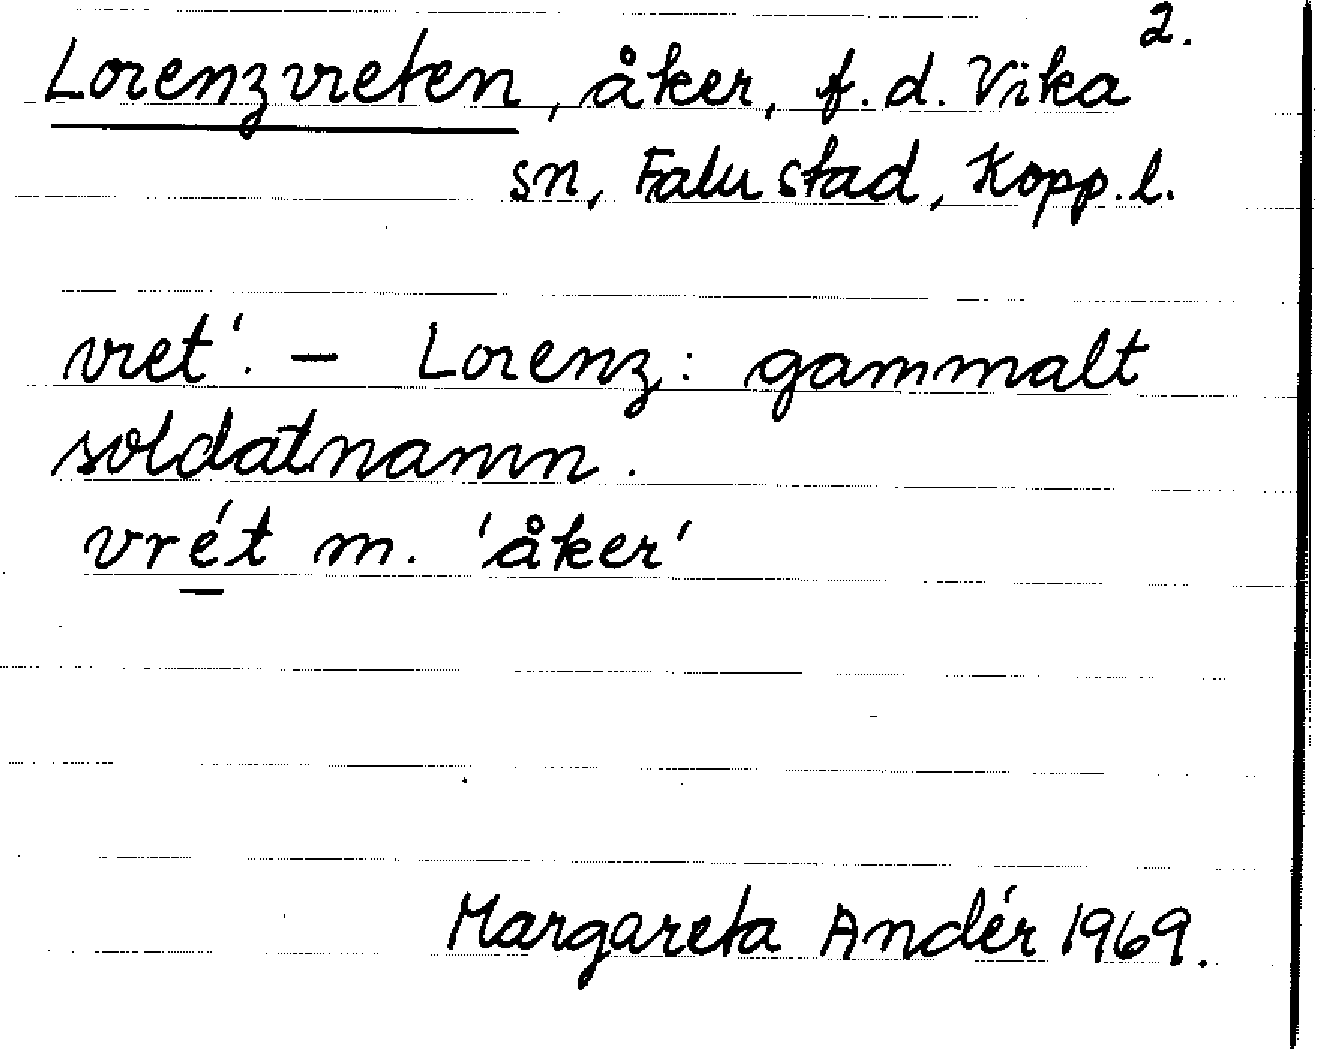 2.
Lorenzvreten, åker, f.d. Vika
sn, Falu stad, Kopp.l.
vret'. – Lorenz: gammalt
soldatnamn.
vrét m. 'åker'
Margareta Andér 1969.